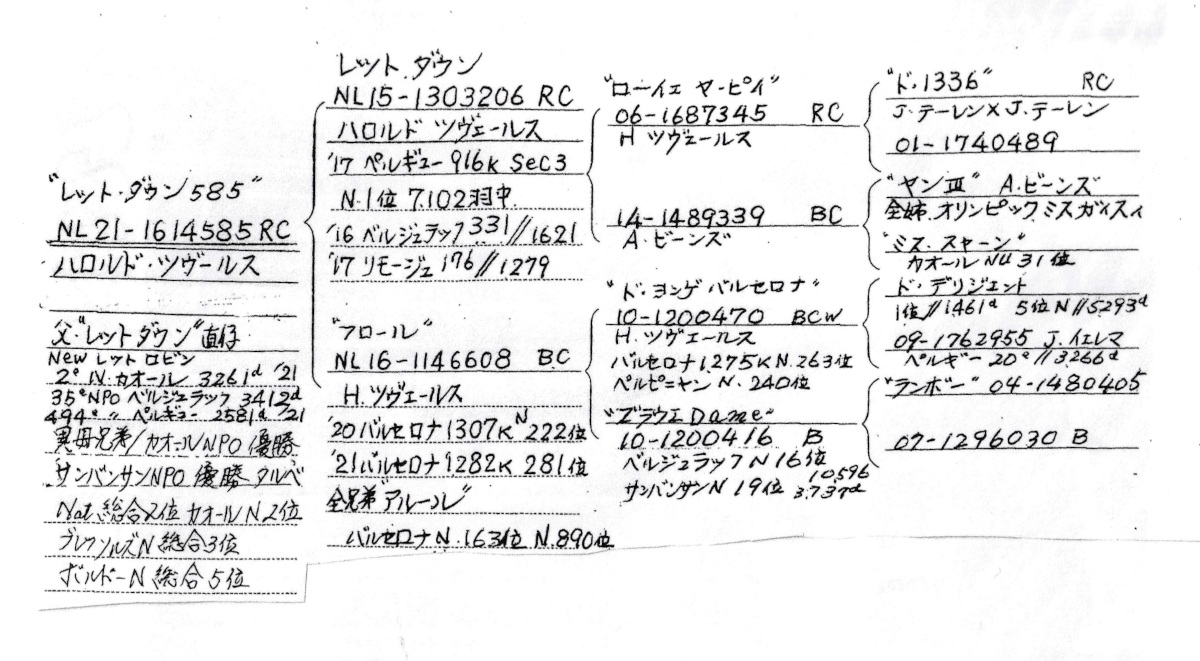 "レット・ダウン585"
NL21-1614585 RC
ハロルド・ツヴールス
父"レットダウン"直仔
New レットロビン
2ᵉ N.カオール 3261ᵈ '21
35ᵉ NPO ベルジュラック 3412ᵈ
494ᵉ 〃 ペルギュー 2581ᵈ '21
異母兄弟/カオールNPO優勝
サンバンサンNPO優勝 タルベ
Nat.総合2位 カオールN2位
N総合3位
ボルドーN総合5位
レット.ダウン
NL15-1303206 RC
ハロルド ツヴェールス
'17 ペルギュー 916K Sec3
N.1位 7.102羽中
'16 ベルジュラック 331//1621
'17 リモージュ 176//1279
"フロール"
NL16-1146608 BC
H.ツヴェールス
'20バルセロナ1307K N 222位
'21バルセロナ1282K 281位
全兄弟"アルール"
バルセロナN.163位 N.890位
"ローイェ ヤーピイ"
06-1687345 RC
H ツヴェールス
14-1489339 BC
A.ビーンズ
"ド・ヨンゲ バルセロナ"
10-1200470 BCW
H.ツヴェールス
バルセロナ1.275K N.263位
ペルピニャン N.240位
Dame"
10-1200416 B
ベルジュラックN16位 10,596
サンバンサンN19位 3,737ᵈ
"ド・1336" RC
J.テーレン×J.テーレン
01-1740489
"ヤンⅢ" A.ビーンズ
全姉.オリンピック ミス ガイスィ
"ミス.スャーン"
カオールNU31位
ド・デリジェント
1位//1461ᵈ 5位N//5293ᵈ
09-1762955 J.イェレマ
ペルギー 20ᵉ//3266ᵈ
"ランボー" 04-1480405
07-1296030 B